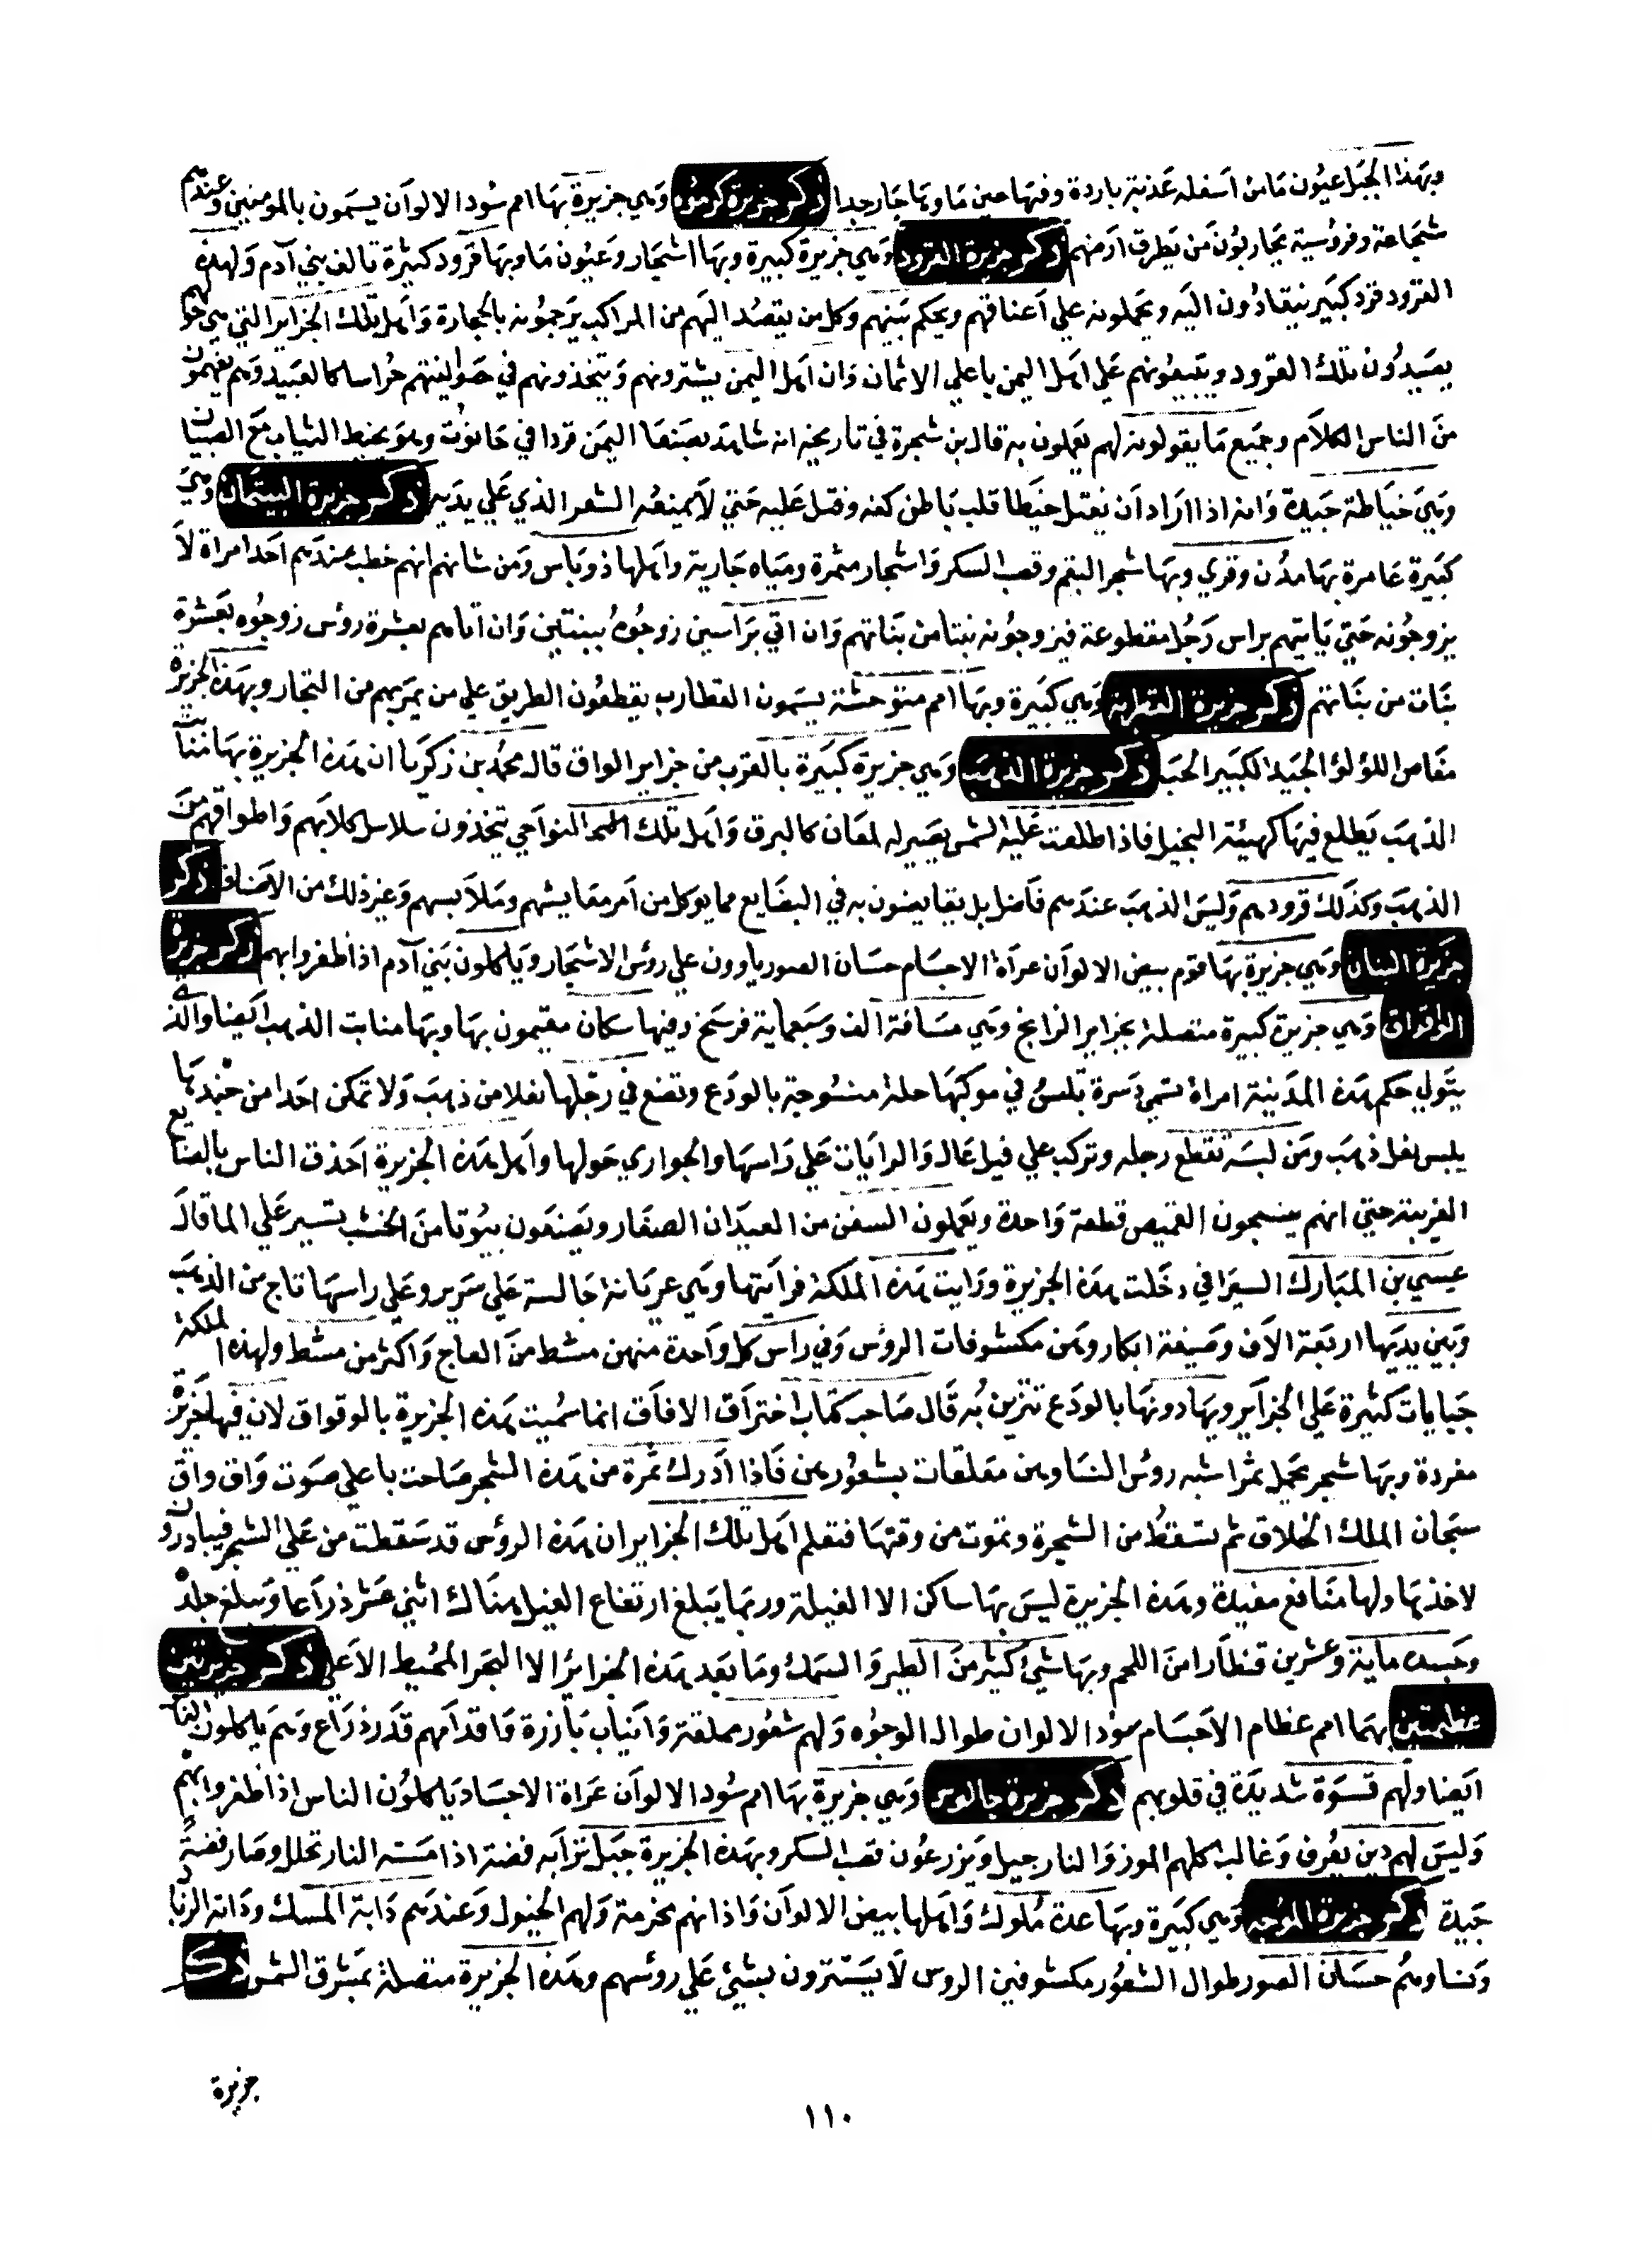 وبهذا الجبل عيون ماس اسفله عذبة باردة وفيها عين ماوها حار جدا ذكر جزيرة كرموه وهي جزيرة بها امم سود الالوان يسمون بالمومنين وعندهم
شجاعة وفروسية يحاربون من يطرق ارضهم ذكر جزيرة القرود وهي جزيرة كبيرة وبها اشجار وعيون ما وبها قرود كثيرة تالف بني آدم ولهذه
القرود قرد كبير ينقادون اليه ويحملونه علي اعناقهم ويحكم بينهم وكل من يقصد اليهم من المراكب يرجمونه بالحجارة واهل تلك الجزاير التي هي
يصيدون تلك القرود ويبيعونهم علي اهل اليمن باعلي الاثمان وان اهل اليمن يشترونهم ويتخذونهم في حوانيتهم حراسا كالعبيد وهم يفهمون
من الناس الكلام وجميع ما يقولونه لهم يعملون به قال بن شجرة في تاريخه انه شاهد بصنعا اليمن قردا في حانوت وهو يخيط الثياب مع الصبيان
وهي خياطة جيدة وانه اذا اراد ان يفتل خيطا قلب باطن كفه وفتل عليه حتي لا يمنعه الشعر الذي علي يديه ذكر جزيرة البيتمان وهي
كبيرة عامرة بها مدن وقري وبها شجر البقم وقصب السكر واشجار مثمرة ومياه جارية واهلها ذو باس ومن شانهم انهم خطب عندهم احد امراة لا
يزوجونه حتي ياتيهم براس رجل مقطوعة فيزوجونه بنتا من بناتهم وان اتي براسين زوجوه ببنتين وان اتاهم بعشرة رؤس زوجوه بعشرة
بنات من بناتهم ذكر جزيرة القطربة وهي كبيرة وبها امم متوحشة يسمون القطارب يقطعون الطريق علي من يمر بهم من التجار وبهذه الجزيرة
مغاص اللؤلؤ الجيد الكبير الحب ذكر جزيرة الذهب وهي جزيرة كبيرة بالقرب من جزاير الواق قال محمد بن زكريا ان هذه الجزيرة بها منابت
الذهب يطلع فيها كهيئة النجيل فاذا طلعت عليه الشمس يصير له لمعان كالبرق واهل تلك النواحي يتخذون سلاسل كلابهم واطواقهم من
الذهب وكذلك قرودهم وليس الذهب عندهم فاضل بل يقايضون به في البضايع مما يوكل من امر معايشهم وملابسهم وغير ذلك من الاصناف ذكر
جزيرة البنان وهي جزيرة بها قوم بيض الالوان عراة الاجسام حسان الصور ياوون علي رؤس الاشجار وياكلون بني آدم اذا ظفروا بهم ذكر جزيرة
الواقواق وهي جزيرة كبيرة متصلة بجزاير الزابج وهي مسافة الف وسبعماية فرسخ وفيها سكان مقيمون بها وبها منابت الذهب ايضا والذي
يتولي حكم هذه المدينة امراة تسمي دسرة تلبس في موكبها حلة منسوجة بالودع وتضع في رجلها نعلا من ذهب ولا تمكن احدا من جندها
يلبس نعل ذهب ومن لبسه تقطع رجله وتركب علي فيل عال والرايات علي راسها والجواري حولها واهل هذه الجزيرة احذق الناس بالصنايع
الغريبة حتي انهم ينسجون القميص قطعة واحدة ويعملون السفن من العيدان الصغار ويصنعون بيوتا من الخشب تسير علي الما قال
عيسي بن المبارك السيرافي دخلت هذه الجزيرة ورايت هذه الملكة فرايتها وهي عريانة جالسة علي سرير وعلي راسها تاج من الذهب
وبين يديها اربعة الاف وصيفة ابكار وهن مكشوفات الروس وفي راس كل واحدة منهن مشط من العاج واكثر من مشط ولهذه الملكة
جبايات كثيرة علي الجزاير ويهادونها بالودع تتزين به قال صاحب كتاب اختراق الافاق انما سميت هذه الجزيرة بالوقواق لان فيها جزيرة
مفردة وبها شجر يحمل ثمرا شبه روس النسا وهن معلقات بشعورهن فاذا ادرك ثمرة من هذه الشجر صاحت باعلي صوت واق واق
سبحان الملك الخلاق ثم تسقط من الشجرة وتموت من وقتها فتعلم اهل تلك الجزاير ان هذه الرؤس قد سقطت من علي الشجر فيبادرون
لاخذها ولها منافع مفيدة وهذه الجزيرة ليس بها ساكن الا الفيلة وربما يبلغ ارتفاع الفيل هناك اثني عشر ذراعا وسلغ جلده
وجسده ماية وعشرين قنطارا من اللحم وبها شيئ كثير من الطير والسمك وما بعد هذه الجزايرُ الا البحر المحيط الاعلي ذكر جزيرتين
عظيمتين بهما امم عظام الاجسام سود الالوان طوال الوجوه ولهم شعور مملقة وانياب بارزة واقدامهم قدر ذراع وهم ياكلون الناس
ايضا ولهم قسوة شديدة في قلوبهم ذكر جزيرة جالوس وهي جزيرة بها امم سود الالوان عراة الاجساد ياكلون الناس اذا ظفروا بهم
وليس لهم دين يعرف وغالب اكلهم الموز والنارجيل ويزرعون قصب السكر وبهذه الجزيرة جبل ترابه فضة اذا مسته النار تحلل وصار فضة
جيدة ذكر جزيرة وهي كبيرة وبها عدة ملوك واهلها بيض الالوان واذانهم مخرمة ولهم الخيول وعندهم دابة المسك ودابة الزباد
ونساوهم حسان الصور طوال الشعور مكشوفين الروس لا يستترون بشيئ علي روسهم وهذه الجزيرة متصلة بمشرق الشمس ذكر
جزيرة
١١٠